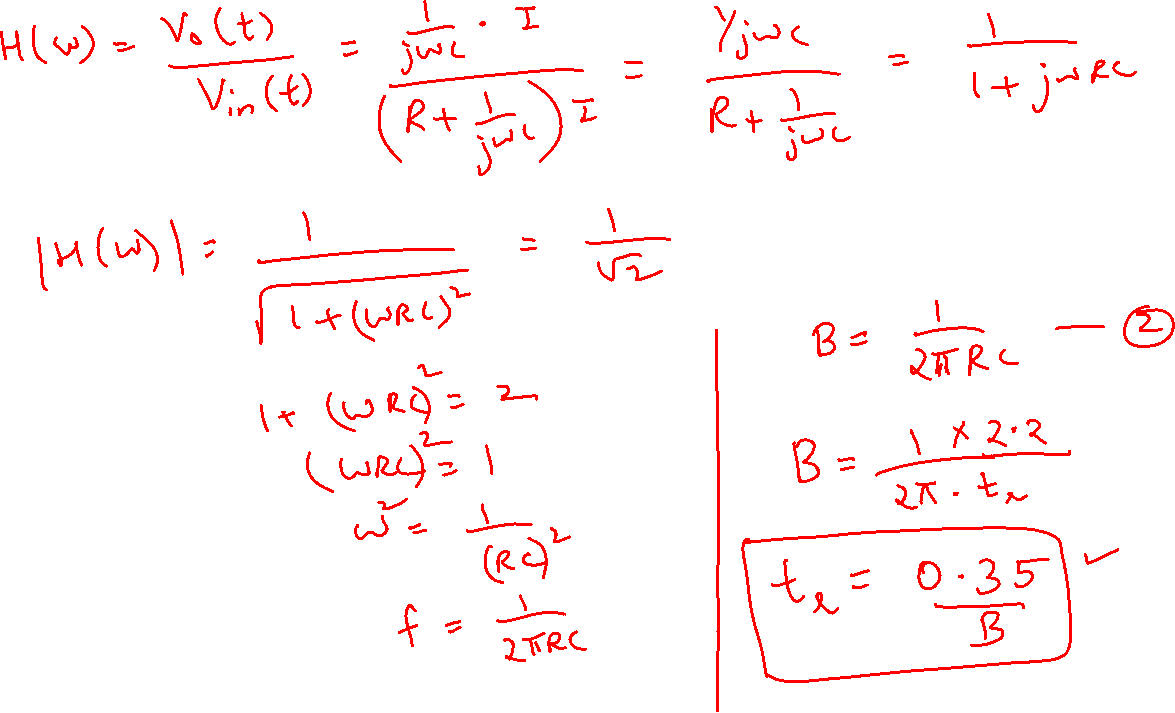 H(w) = Vo(t) / Vin(t) = (1/jwc · I) / ((R + 1/jwc) I) = (1/jwc) / (R + 1/jwc) = 1 / (1 + jwRC)
|H(w)| = 1 / √(1 + (wRC)²) = 1/√2
1 + (wRC)² = 2
(wRC)² = 1
w² = 1 / (RC)²
f = 1 / 2πRC
B = 1 / 2πRC — ②
B = 1 × 2.2 / 2π · tr
tr = 0.35 / B ✓